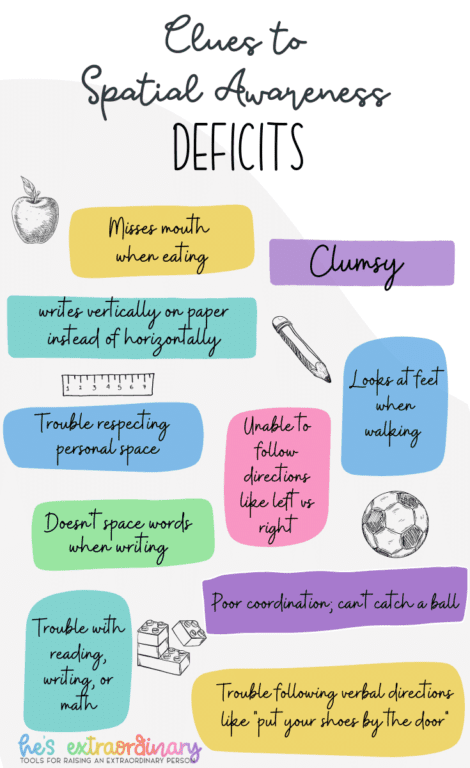 Clues to
Spatial Awareness
DEFICITS
Misses mouth
when eating
Clumsy
writes vertically on paper
instead of horizontally
1 2 3 4 5 6
Looks at feet
when
walking
Trouble respecting
personal space
Unable to
follow
directions
like left vs
right
Doesnt space words
when writing
Poor coordination; cant catch a ball
Trouble with
reading,
writing, or
math
Trouble following verbal directions
like "put your shoes by the door"
he's extraordinary
TOOLS FOR RAISING AN EXTRAORDINARY PERSON